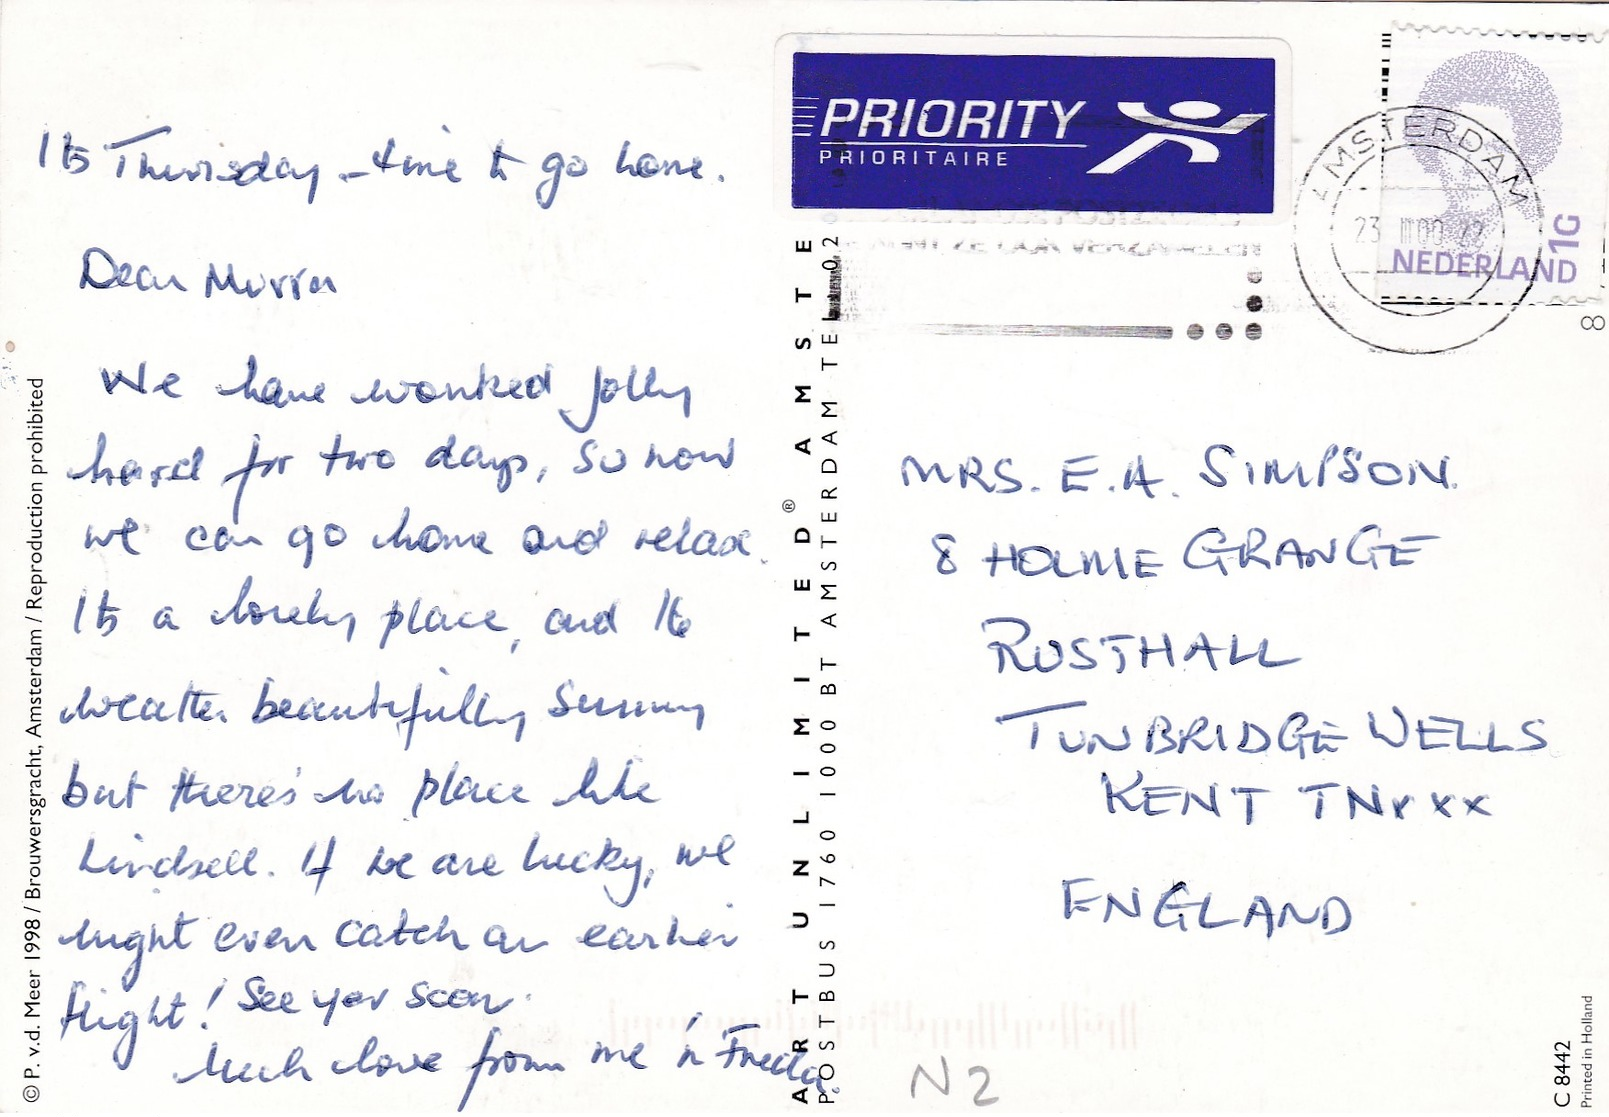 Its Thursday - time to go home.
Dear Murra
We have worked jolly
hard for two days, so now
we can go home and relax.
Its a lovely place, and the
weather beautifully sunny
but there's no place like
Lindsell. If we are lucky, we
might even catch an earlier
flight! See you soon.
Much love from me 'n Frieda.
© P. v.d. Meer 1998 / Brouwersgracht, Amsterdam / Reproduction prohibited
ART UNLIMITED® AMSTE
POSTBUS 1760 1000 BT AMSTERDAM TEL 02
PRIORITY
PRIORITAIRE
AMSTERDAM
23 III 00 22
1G
NEDERLAND
MRS. E.A. SIMPSON.
8 HOLMIE GRANGE
RUSTHALL
TUNBRIDGE WELLS
KENT TNxxx
ENGLAND
N2
C 8442
Printed in Holland
8